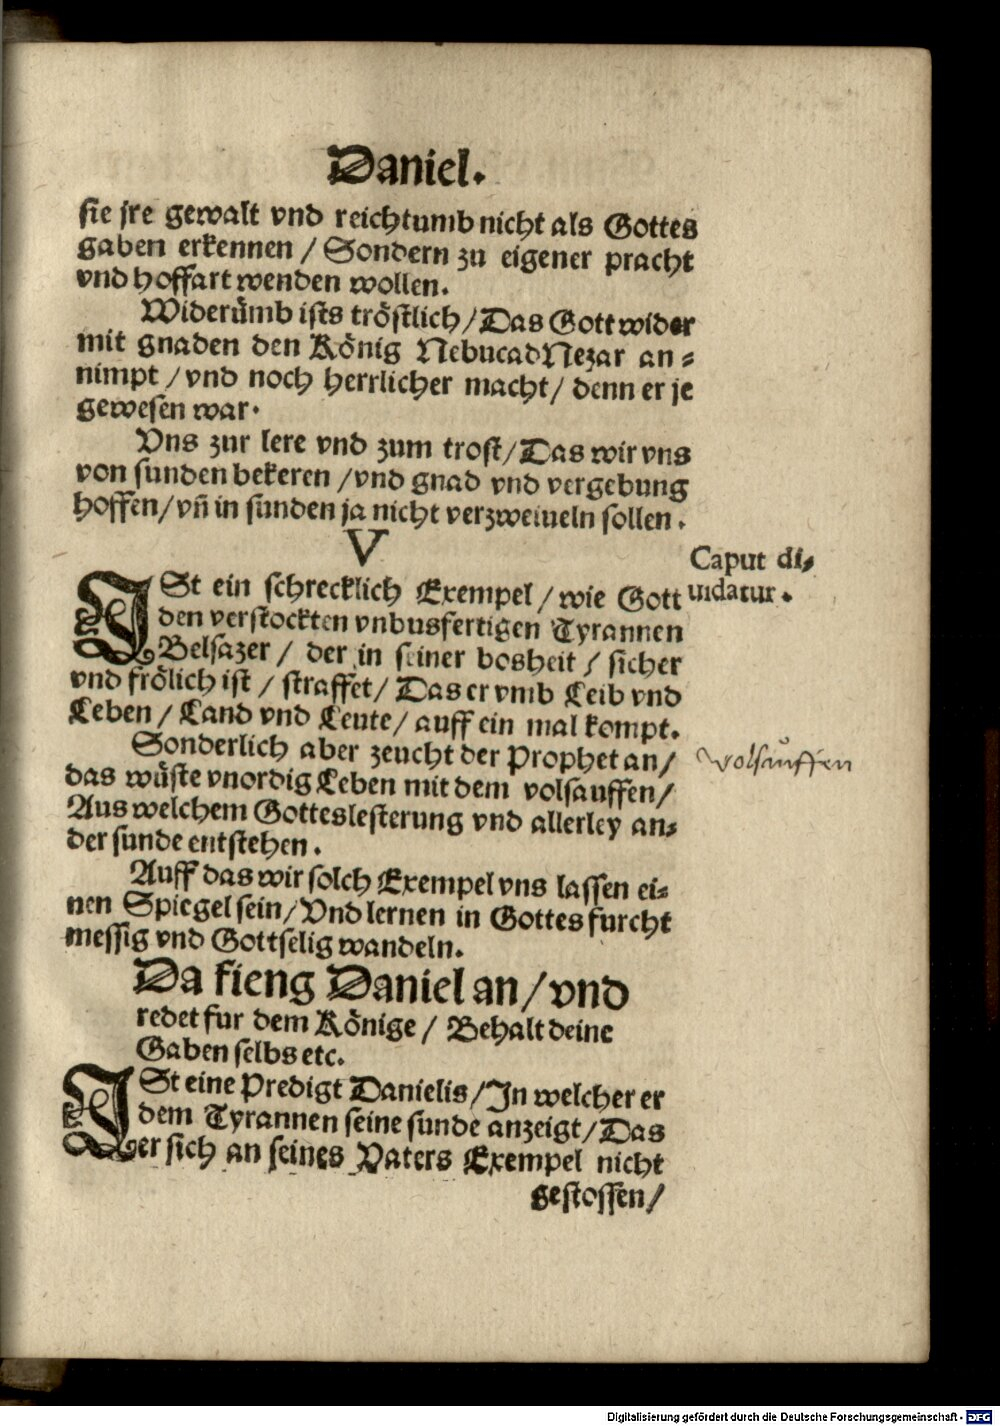 Daniel.
sie jre gewalt vnd reichtumb nicht als Gottes
gaben erkennen / Sondern zu eigener pracht
vnd hoffart wenden wollen.
Widerümb ists tröstlich / Das Gott wider
mit gnaden den König NebucadNezar an⸗
nimpt / vnd noch herrlicher macht / denn er je
gewesen war.
Vns zur lere vnd zum trost / Das wir vns
von sunden bekeren / vnd gnad vnd vergebung
hoffen / vñ in sunden ja nicht verzweiueln sollen.
V
Caput di⸗
uidatur.
ISt ein schrecklich Exempel / wie Gott
den verstockten vnbusfertigen Tyrannen
Belsazer / der in seiner bosheit / sicher
vnd frölich ist / straffet / Das er vmb Leib vnd
Leben / Land vnd Leute / auff ein mal kompt.
Sonderlich aber zeucht der Prophet an /
volsauffen
das wüste vnordig Leben mit dem volsauffen /
Aus welchem Gotteslesterung vnd allerley an⸗
der sunde entstehen.
Auff das wir solch Exempel vns lassen ei⸗
nen Spiegel sein / Vnd lernen in Gottes furcht
messig vnd Gottselig wandeln.
Da fieng Daniel an / vnd
redet fur dem Könige / Behalt deine
Gaben selbs etc.
ISt eine Predigt Danielis / In welcher er
dem Tyrannen seine sunde anzeigt / Das
er sich an seines Vaters Exempel nicht
gestossen /
Digitalisierung gefördert durch die Deutsche Forschungsgemeinschaft - DFG